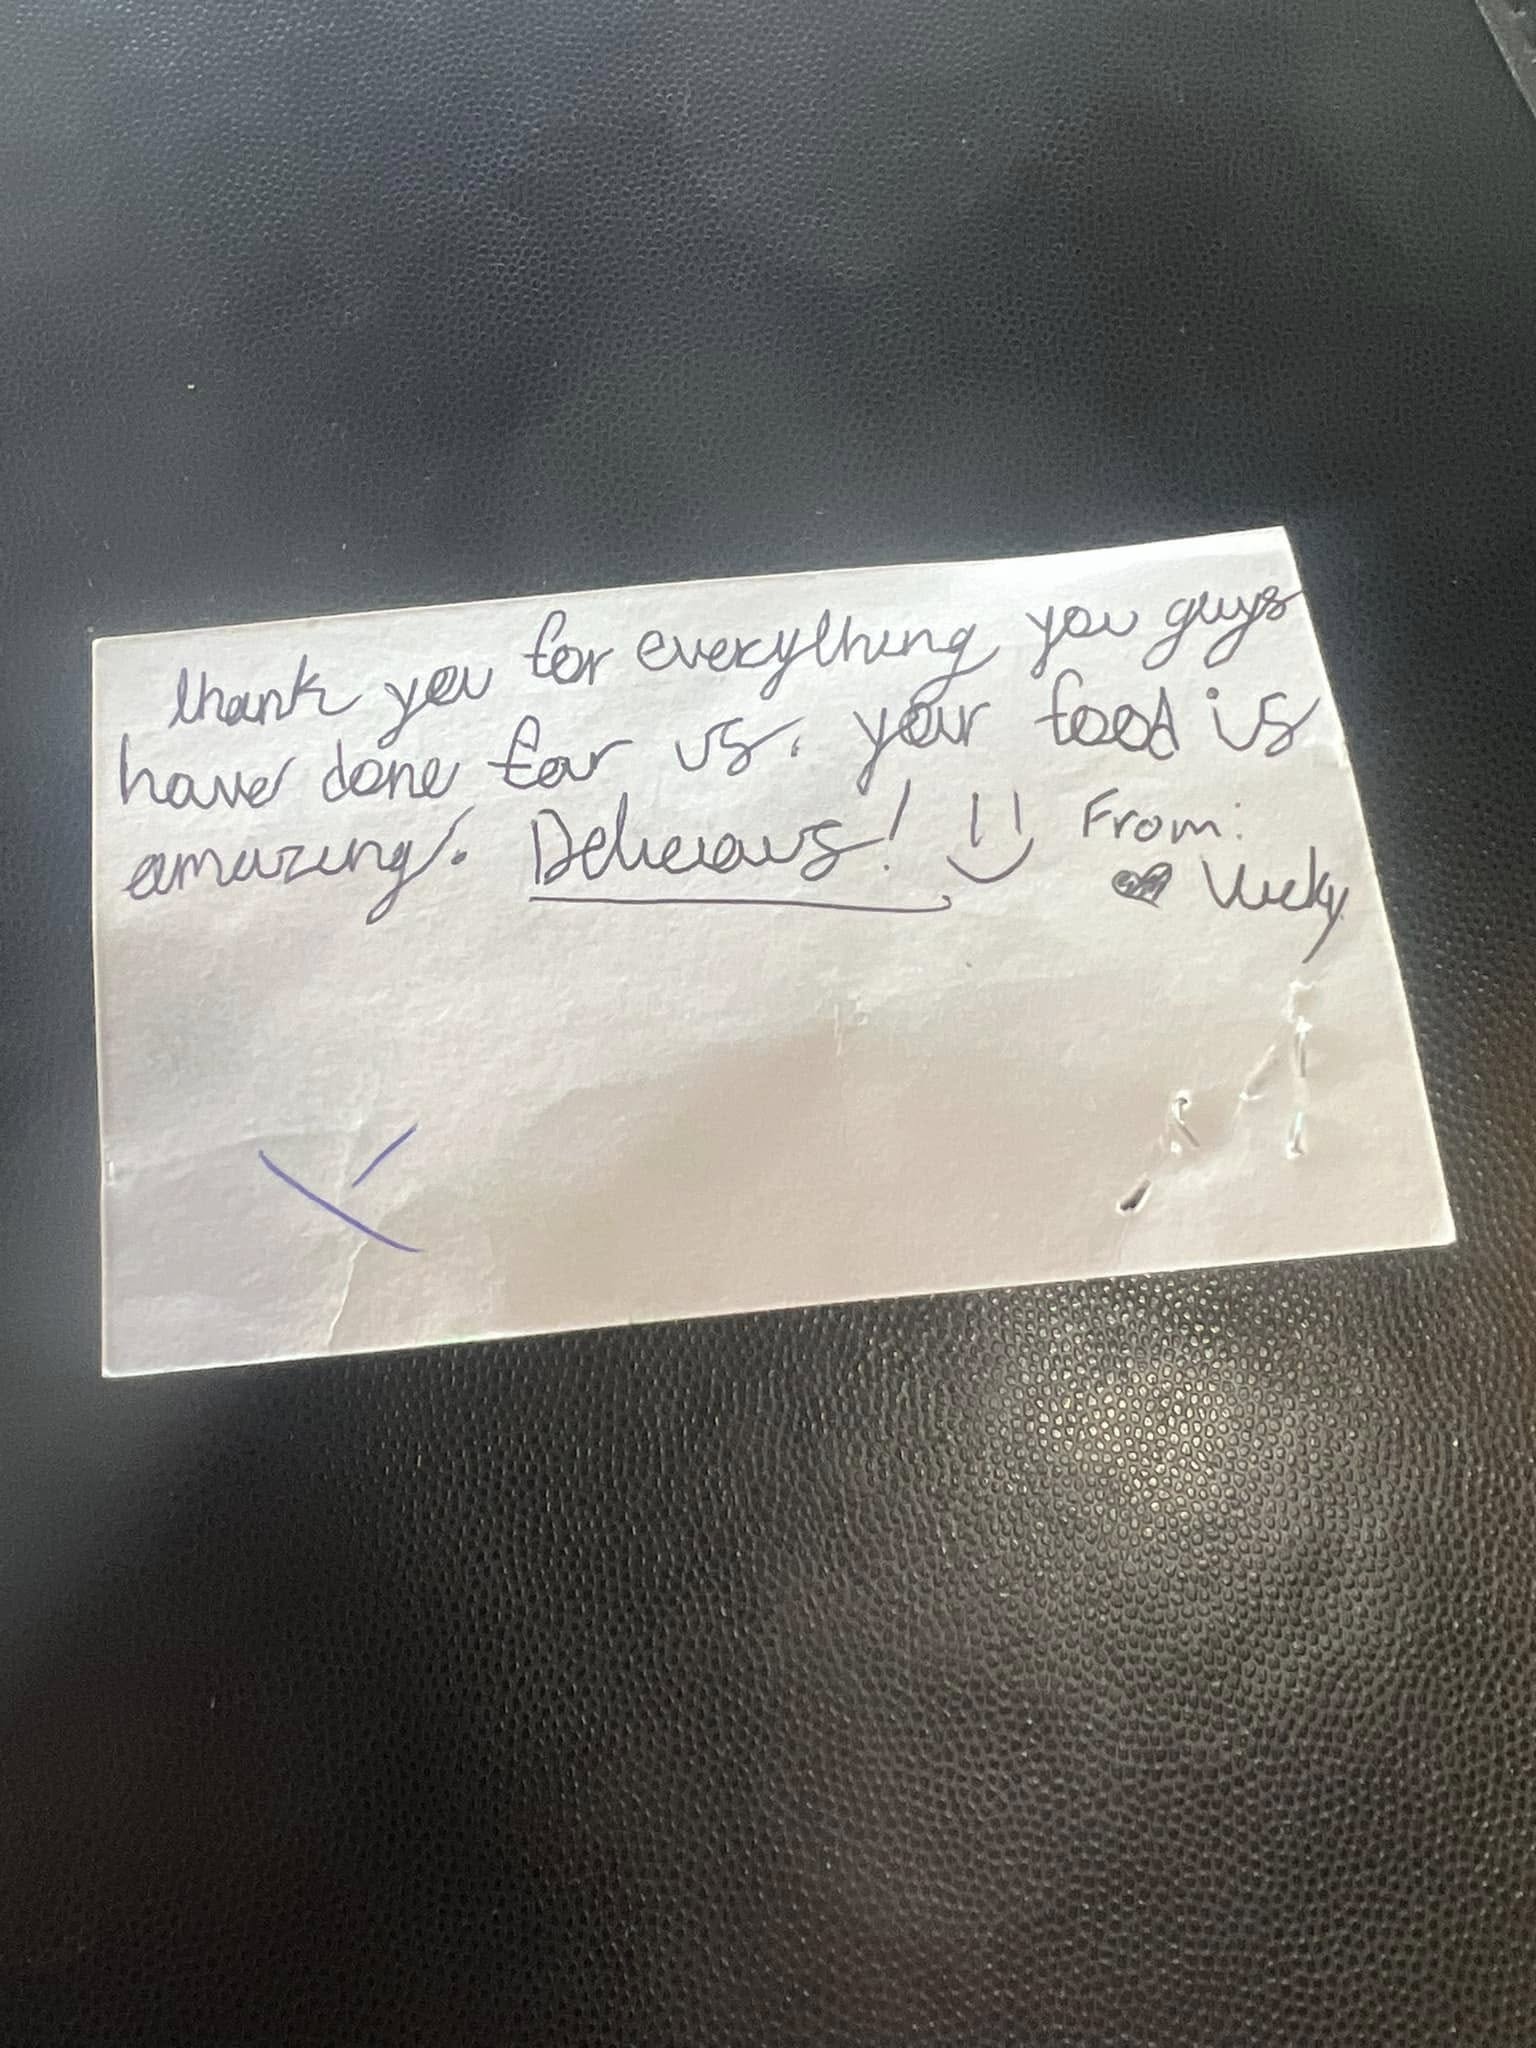 thank you for everything you guys
have done for us. your food is
amazing. Delicious! From:
Vicky